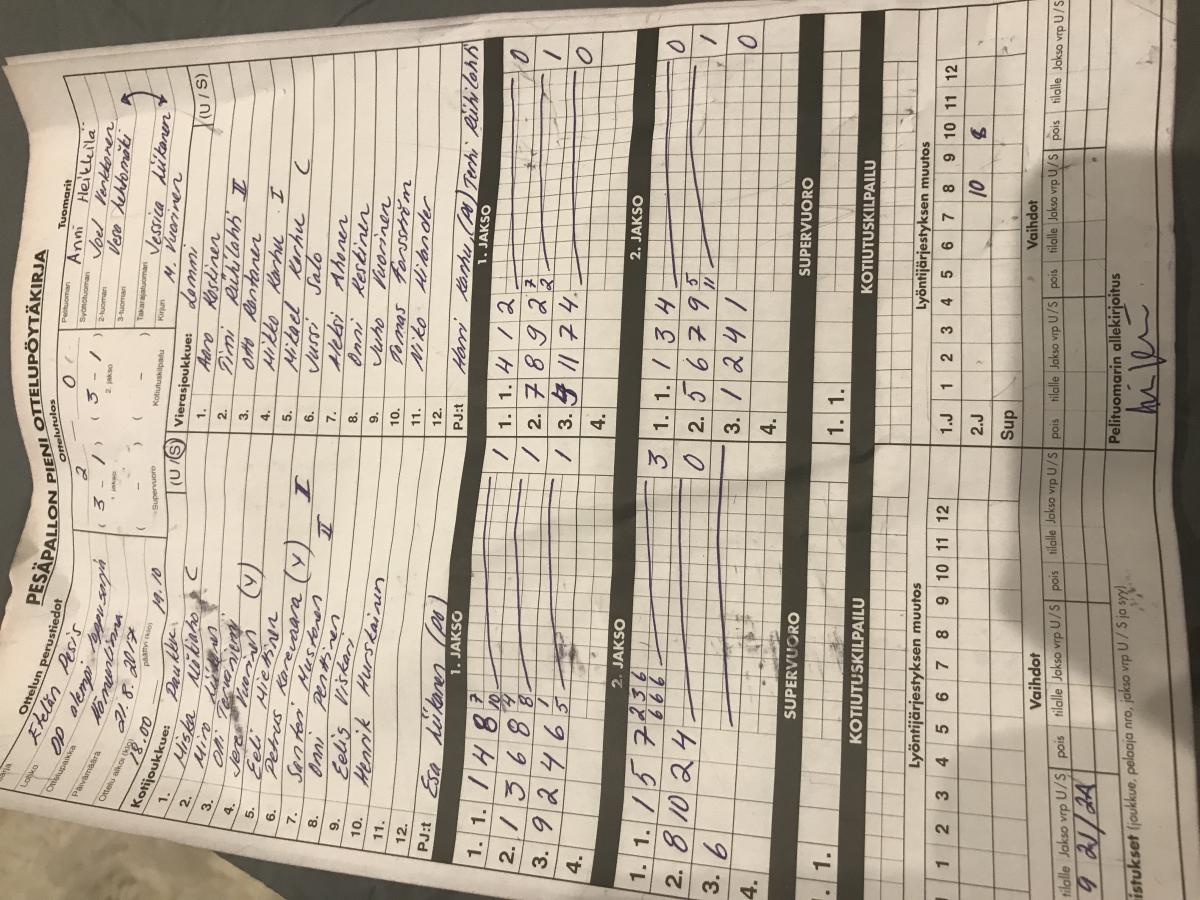 PESÄPALLON PIENI OTTELUPÖYTÄKIRJA
Ottelun perustiedot
Lohko Etelän Pesis
Ottelupaikka
Päivämäärä Hämeenlinna
21.8.2017
Ottelu alkoi (klo) 18.00 päättyi (klo) 19.10
Ottelutulos
2 0
( 3 - 1 ) ( 3 - 1 )
1. jakso 2. jakso
( - ) ( - )
Supervuoro Kotiutuskilpailu
Tuomarit
Pelituomari Anni Heikkilä
Syöttötuomari Joel Verkkonen
2-tuomari Vesa Lehtomäki
3-tuomari
Takarajatuomari Jessica Liikanen
Kirjuri M. Vuorinen
Kotijoukkue: Paukku (U / S)
1. Miska C
2. Miro
3. Olli
4.
5. Eeli Vuorinen (Y)
6. Petrus Miettinen
7. Santeri Karevaara (Y)
8. Onni Mustonen I
9. Eelis Penttinen II
10. Henrik Viskari
11. Hurskainen
12.
PJ:t Esa Liikanen (PJ)
Vierasjoukkue: Lammi (U / S)
1. Aaro Koskinen
2. Timi Riihilahti II
3. Otto Rantanen
4. Mikko Karhu I
5. Mikael Karhu C
6. Jussi Salo
7. Aleksi Ahonen
8. Onni Keskinen
9. Juho Vuorinen
10. Tomas Forsström
11. Niko Hilander
12.
PJ:t Harri Karhu (PJ) Terhi Riihilahti
1. JAKSO
1. 1. 1 4 8 7 1
2. 1 3 6 8 10 4 1
3. 9 2 4 6 5 1 1
4.
1. JAKSO
1. 1. 4 1 2 0
2. 7 8 9 2 2 7 1
3. 5 11 7 4 0
4.
2. JAKSO
1. 1. 1 5 7 2 3 6 6 6 6 3
2. 8 10 2 4 0
3. 6
4.
2. JAKSO
1. 1. 1 3 4 0
2. 5 6 7 9 11 5 1
3. 1 2 4 1 0
4.
SUPERVUORO
1. 1.
SUPERVUORO
1. 1.
KOTIUTUSKILPAILU
KOTIUTUSKILPAILU
Lyöntijärjestyksen muutos
1 2 3 4 5 6 7 8 9 10 11 12
Lyöntijärjestyksen muutos
1.J 1 2 3 4 5 6 7 8 9 10 11 12
2.J 10 8
Sup
Vaihdot
tilalle Jakso vrp U/S pois tilalle Jakso vrp U/S pois tilalle Jakso vrp U/S
9 21/24
Vaihdot
pois tilalle Jakso vrp U/S pois tilalle Jakso vrp U/S pois tilalle Jakso vrp U/S
istukset (joukkue, pelaaja nro, jakso vrp U / S ja syy)
Pelituomarin allekirjoitus